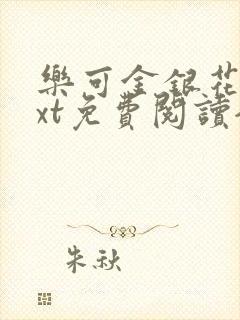 樂可金銀花
xt免費閱讀
朱秋